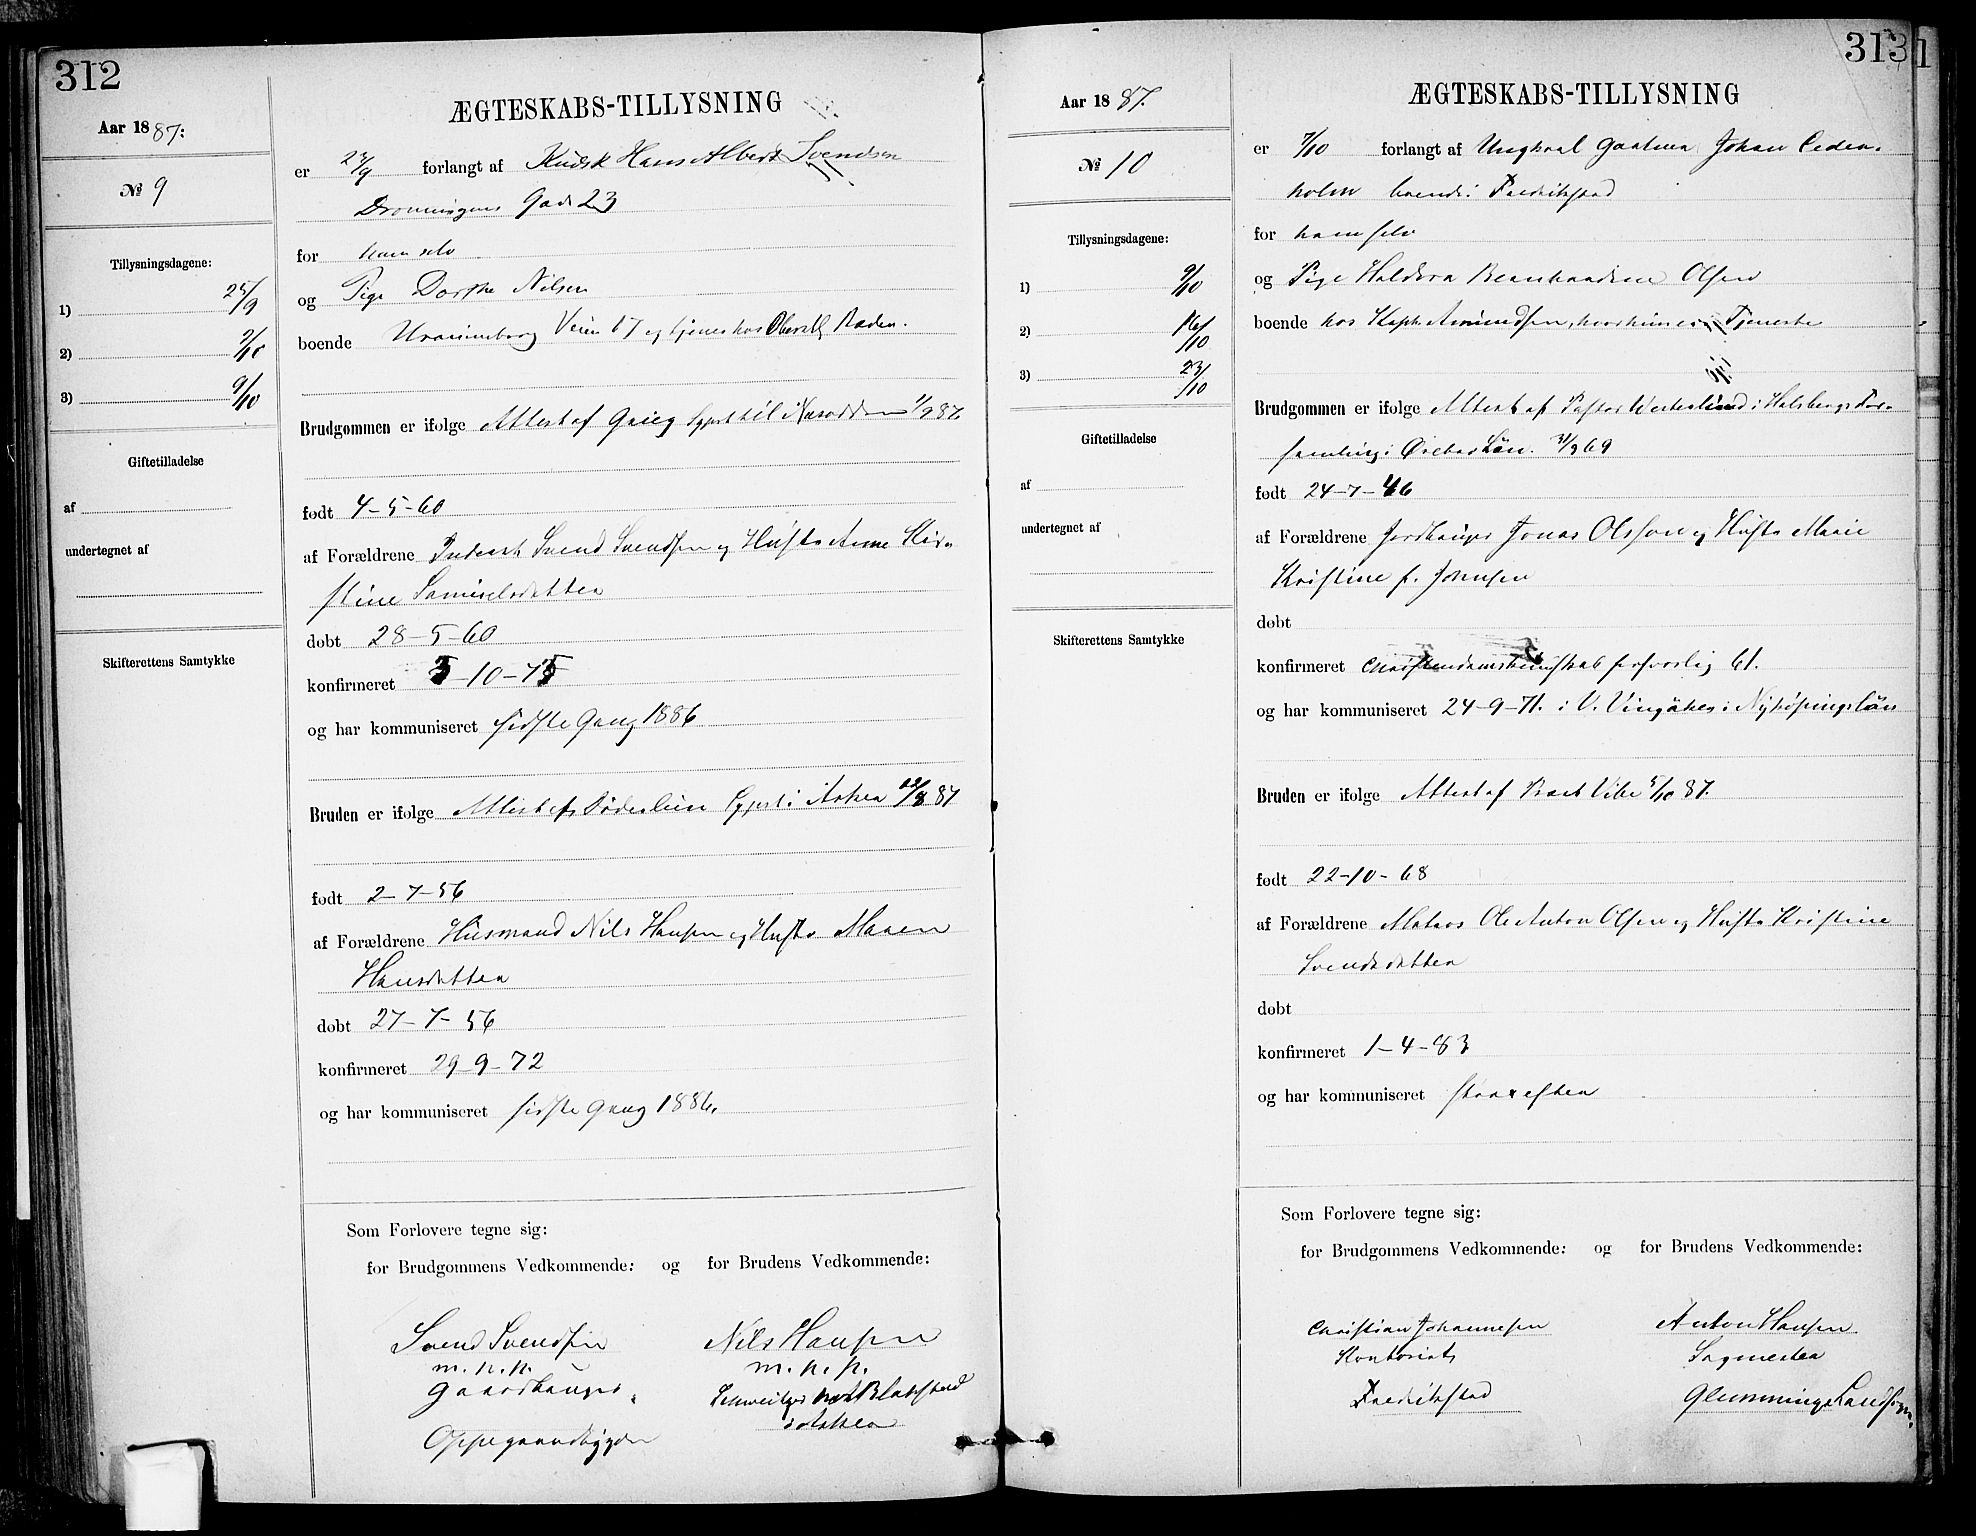 312
Aar 1887:
№ 9
Tillysningsdagene:
1) 25/9
2) 2/10
3) 9/10
Giftetilladelse
af
undertegnet af
Skifterettens Samtykke
ÆGTESKABS-TILLYSNING
er 23/9 forlangt af Kudsk Hans Albert Svendsen
Dronningens Gade 23
for ham selv
og Pige Dorthe Nilsen
boende Uranienborg Veien 17 og tjener hos Oberstl Roden.
Brudgommen er ifølge Attest af Grieg Sgprst til Næsodden 1/9 87.
født 4-5-60
af Forældrene Inderst Svend Svendsen og Hustr Anne Kir-
stine Samuelsdatter
døbt 28-5-60
konfirmeret 3-10-75
og har kommuniseret sidste Gang 1886
Bruden er ifølge Attest af Søderlien Sgprst i Asker 22/8 87
født 2-7-56
af Forældrene Husmand Nils Hansen og Hustr Maren
Hansdatter
døbt 27-7-56
konfirmeret 29-9-72
og har kommuniseret sidste Gang 1886.
Som Forlovere tegne sig:
for Brudgommens Vedkommende: og for Brudens Vedkommende:
Svend Svendsen Nils Hansen
m. p. p. m. p. p.
Gaardbruger Blakstad
Oppegaardbygden i Asker
313
Aar 1887.
№ 10
Tillysningsdagene:
1) 9/10
2) 16/10
3) 23/10
Giftetilladelse
af
undertegnet af
Skifterettens Samtykke
ÆGTESKABS-TILLYSNING
er 7/10 forlangt af Ungkarl Gartner Johan Ceder-
holm boende i Fredrikstad
for ham selv
og Pige Haldora Bernhardine Olsen
boende hos Kapt Amundsen, hvor hun er i Tjeneste
Brudgommen er ifølge Attest af Pastor Westerlund i Halsbergs For-
samling i Ørebro Län. 31/3 69
født 24-7-46
af Forældrene Jordbruger Jonas Olsson og Hustr Marie
Kristine f. Johnsen
døbt
konfirmeret Christendomskundskab forsvarlig 61.
og har kommuniseret 24-9-71. i V. Vingåker i Nyköpings Län
Bruden er ifølge Attest af Prost Vibe 5/10 87.
født 22-10-68
af Forældrene Matros Ole Anton Olsen og Hustr Kristine
Svendsdatter
døbt
konfirmeret 1-4-83
og har kommuniseret strax efter
Som Forlovere tegne sig:
for Brudgommens Vedkommende: og for Brudens Vedkommende:
Christian Johannesen Anton Hansen
Kontorist Sagmester
Fredrikstad Glemminge Landsogn.